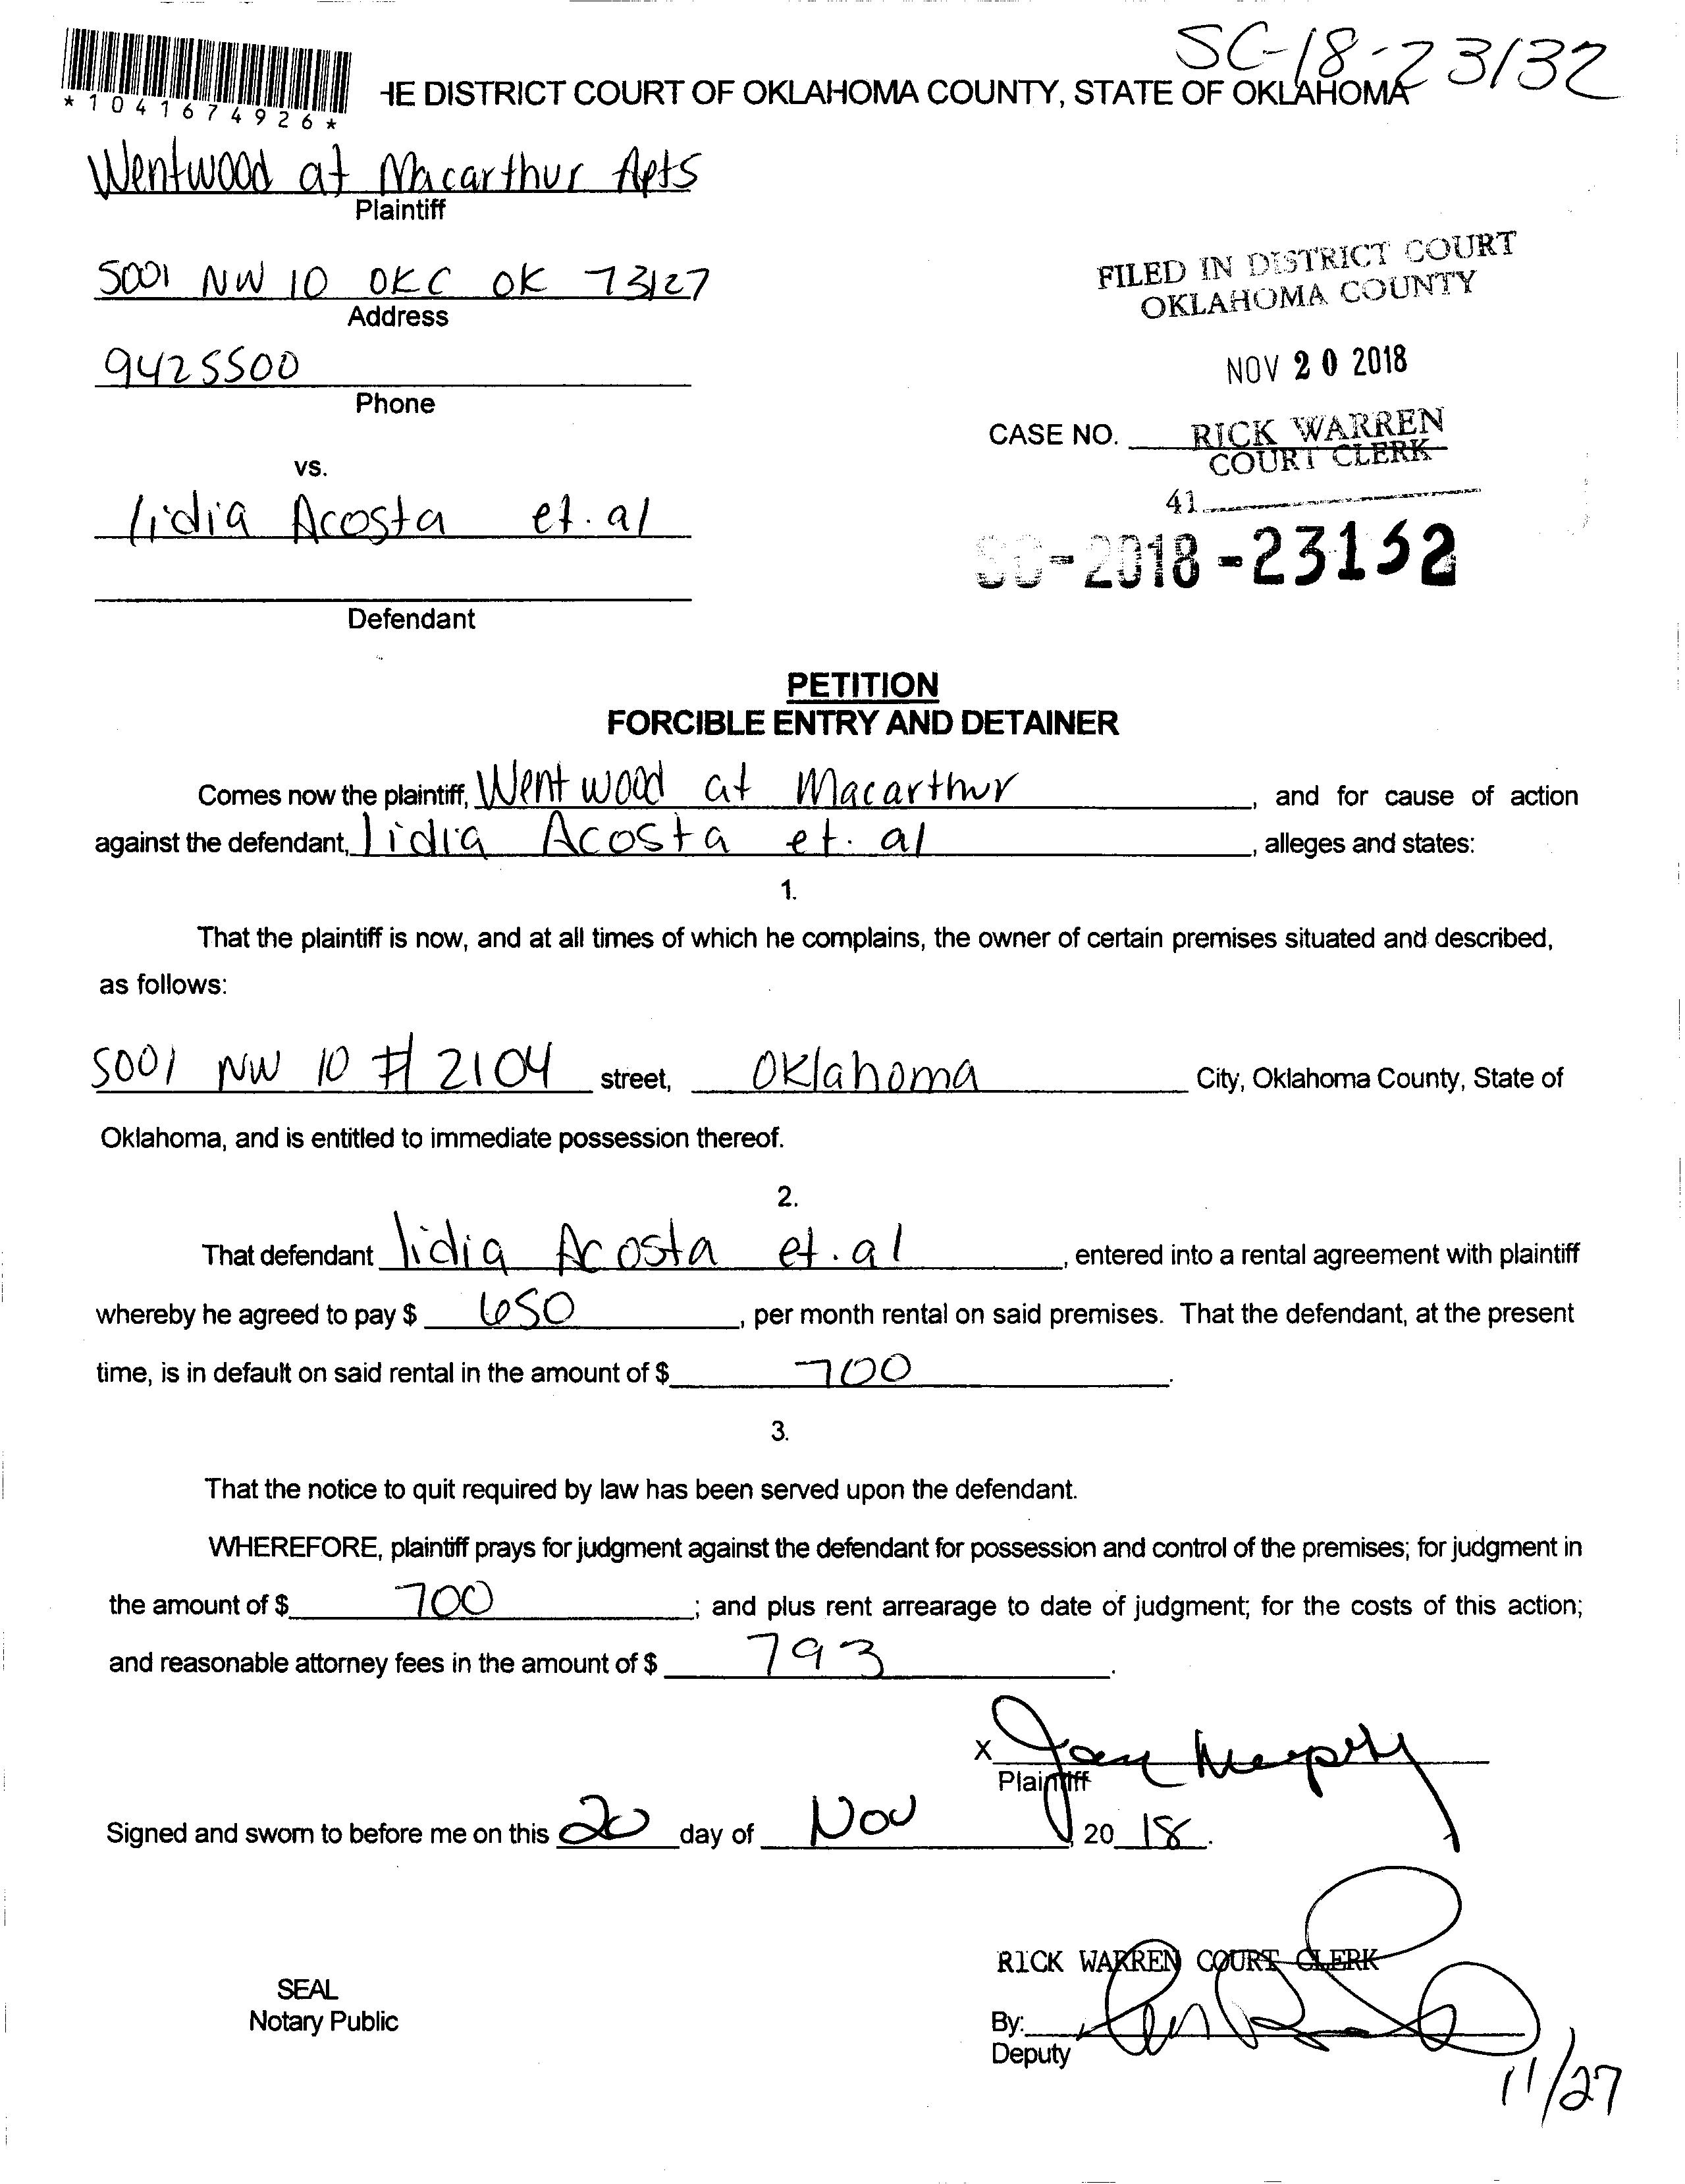 SC-18-23132
*1041674926*
HE DISTRICT COURT OF OKLAHOMA COUNTY, STATE OF OKLAHOMA
Wentwood at Macarthur Apts
Plaintiff
5001 NW 10 OKC OK 73127
Address
FILED IN DISTRICT COURT
OKLAHOMA COUNTY
9425500
Phone
NOV 20 2018
CASE NO. RICK WARREN
COURT CLERK
vs.
41
lidia Acosta et. al
SC-2018-23132
Defendant
PETITION
FORCIBLE ENTRY AND DETAINER
Comes now the plaintiff, Wentwood at Macarthur, and for cause of action
against the defendant, lidia Acosta et. al, alleges and states:
1.
That the plaintiff is now, and at all times of which he complains, the owner of certain premises situated and described,
as follows:
5001 NW 10 # 2104 street, Oklahoma City, Oklahoma County, State of
Oklahoma, and is entitled to immediate possession thereof.
2.
That defendant lidia Acosta et. al, entered into a rental agreement with plaintiff
whereby he agreed to pay $ 650, per month rental on said premises. That the defendant, at the present
time, is in default on said rental in the amount of $ 700.
3.
That the notice to quit required by law has been served upon the defendant.
WHEREFORE, plaintiff prays for judgment against the defendant for possession and control of the premises; for judgment in
the amount of $ 700; and plus rent arrearage to date of judgment; for the costs of this action;
and reasonable attorney fees in the amount of $ 793.
X
Plaintiff
Signed and sworn to before me on this 20 day of Nov, 2018.
RICK WARREN COURT CLERK
SEAL
Notary Public
By:
Deputy
11/27